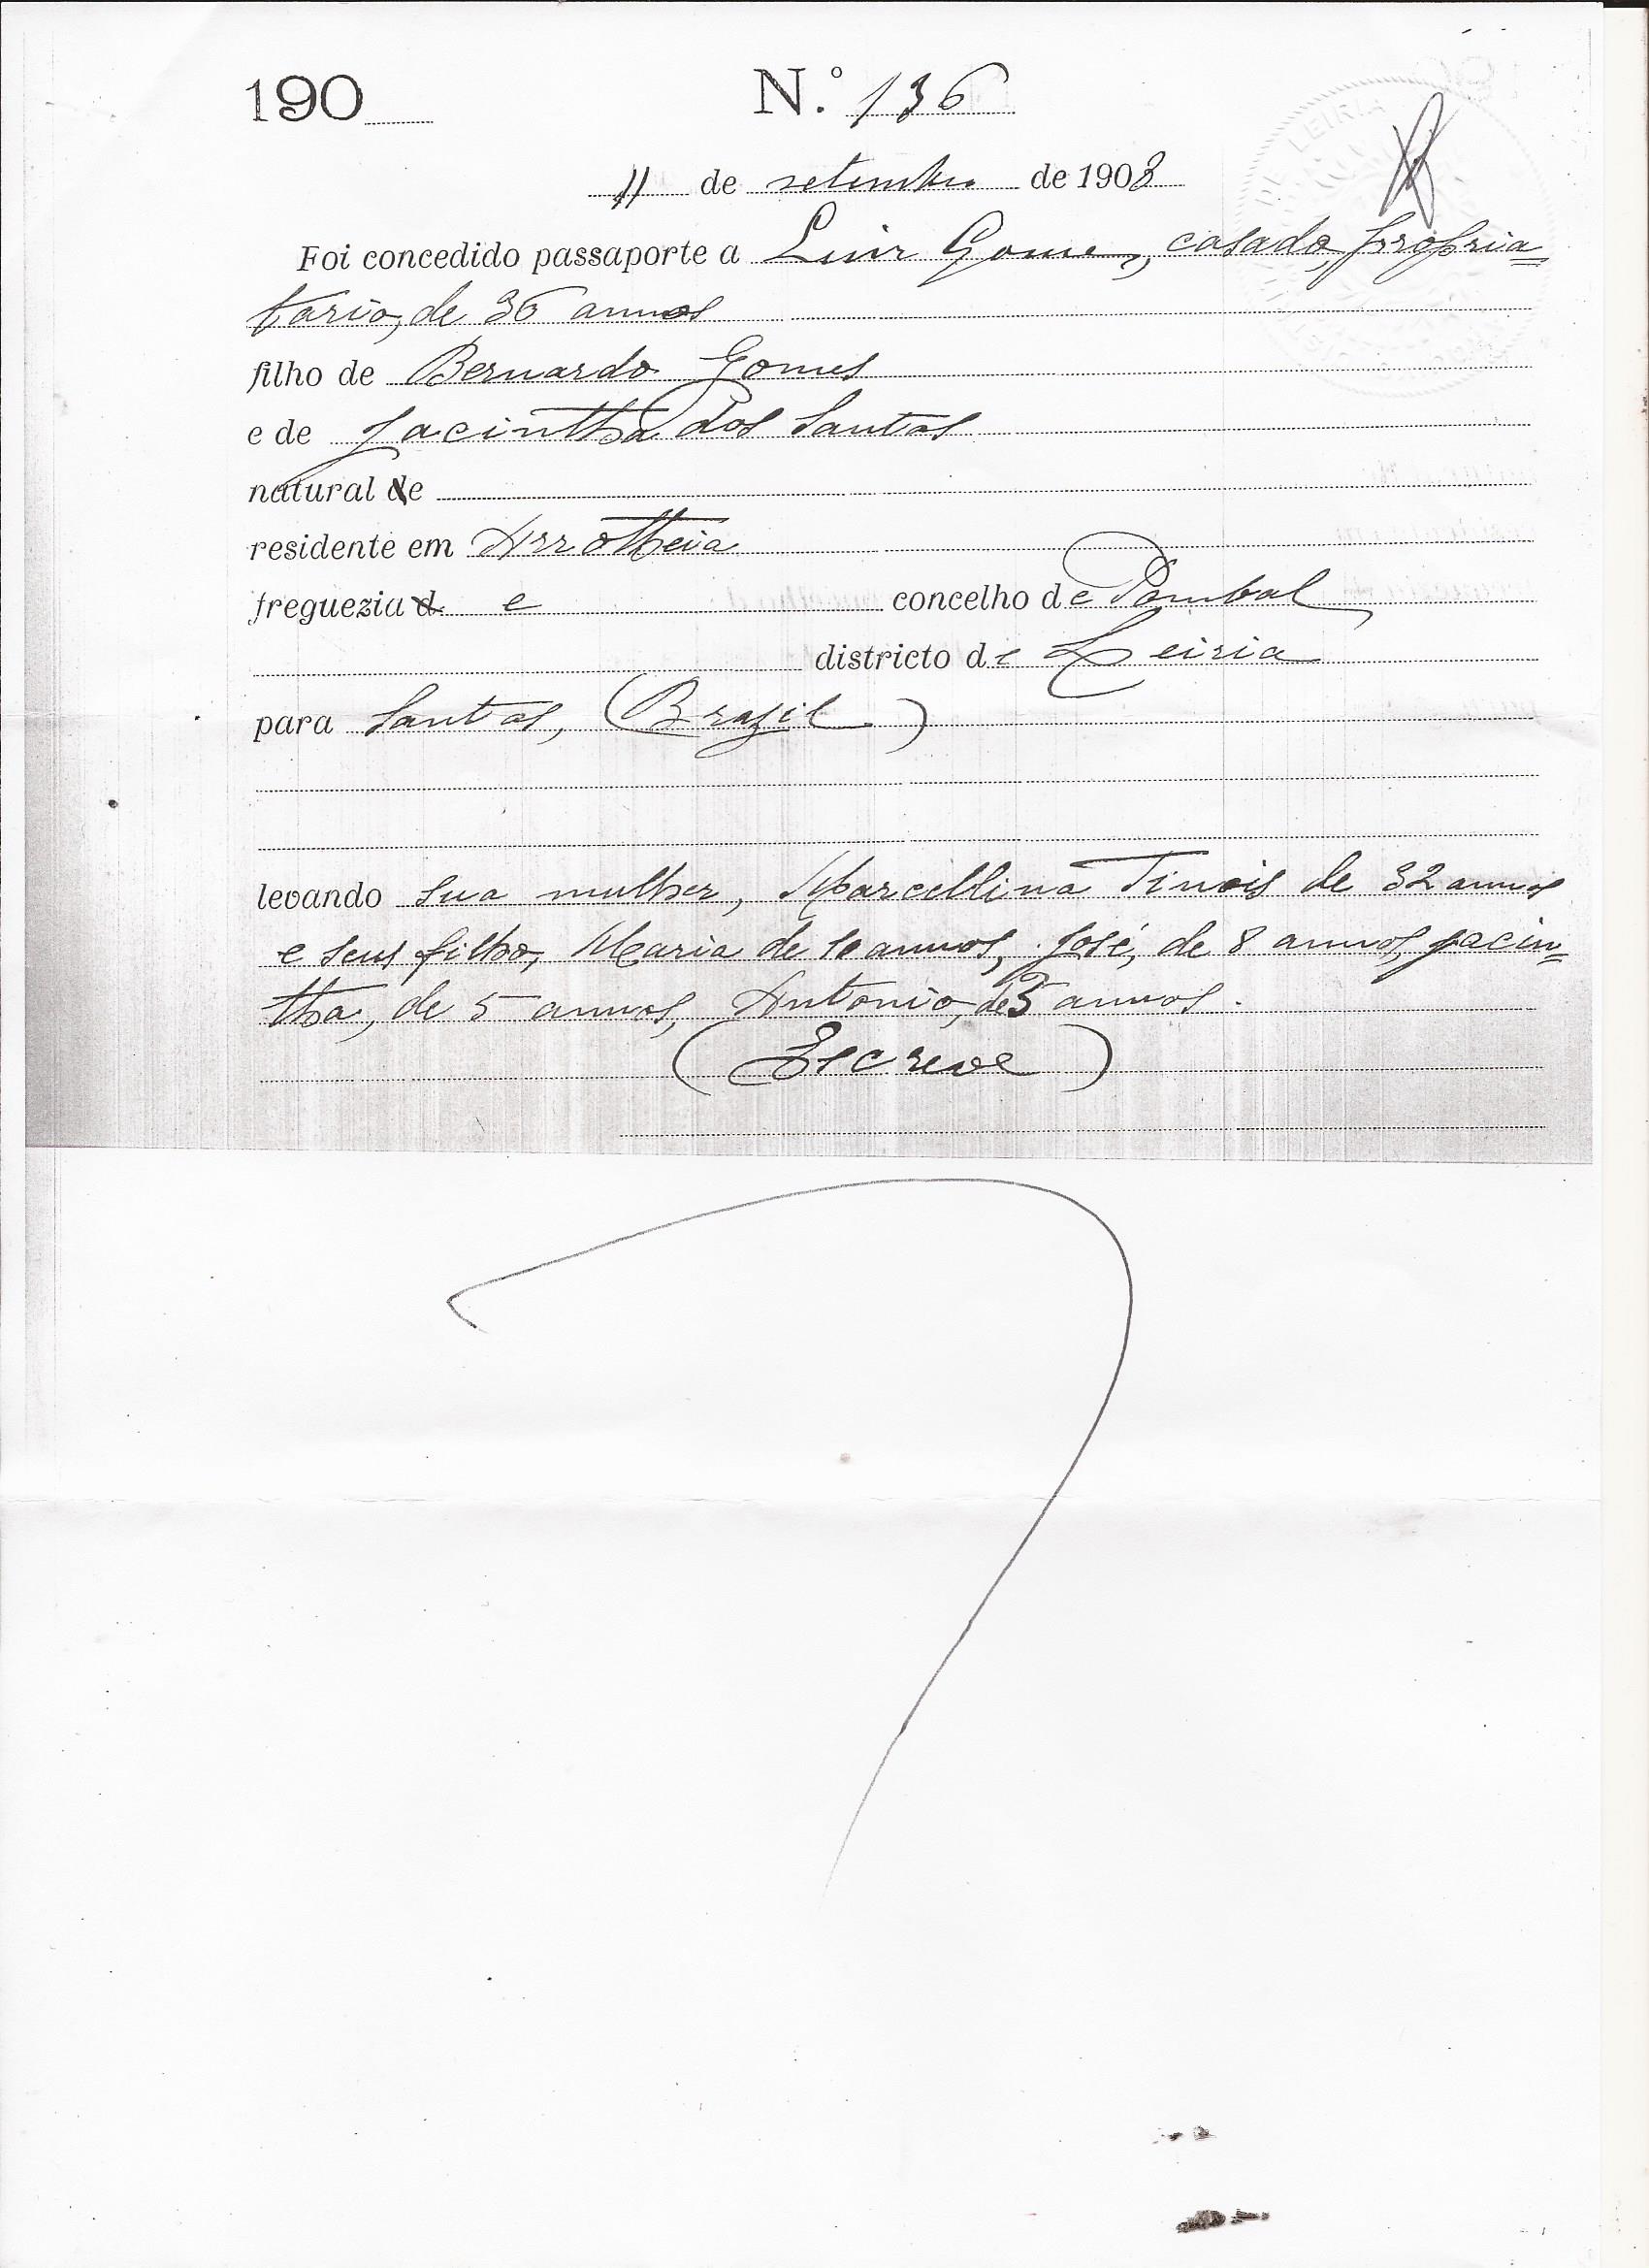 190 N.º 136
11 de setembro de 1908
Foi concedido passaporte a Luiz Gomes, casado, propria=
tario, de 36 annos
filho de Bernardo Gomes
e de Jacintha dos Santos
natural de
residente em Arrotheia
freguezia d e concelho de Pombal
districto de Leiria
para Santos, (Brazil)
levando sua mulher, Marcellina de 32 annos
e seus filhos, Maria de 10 annos, José, de 8 annos, Jacin=
tha, de 5 annos, Antonio, de annos.
(Escreve)
LEIRIA